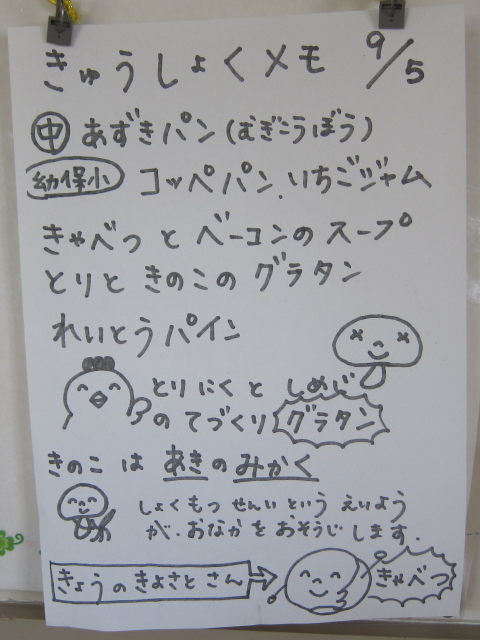 きゅうしょくメモ 9/5
中 あずきパン(むぎこうぼう)
幼保小 コッペパン.いちごジャム
きゃべつ と ベーコンの スープ
とりと きのこの グラタン
れいとうパイン
とりにくと しめじ
の てづくり グラタン
きのこ は あきの みかく
しょくもつ せんい という えいよう
が.おなかを おそうじ します.
きょうの きよさと さん
きゃべつ